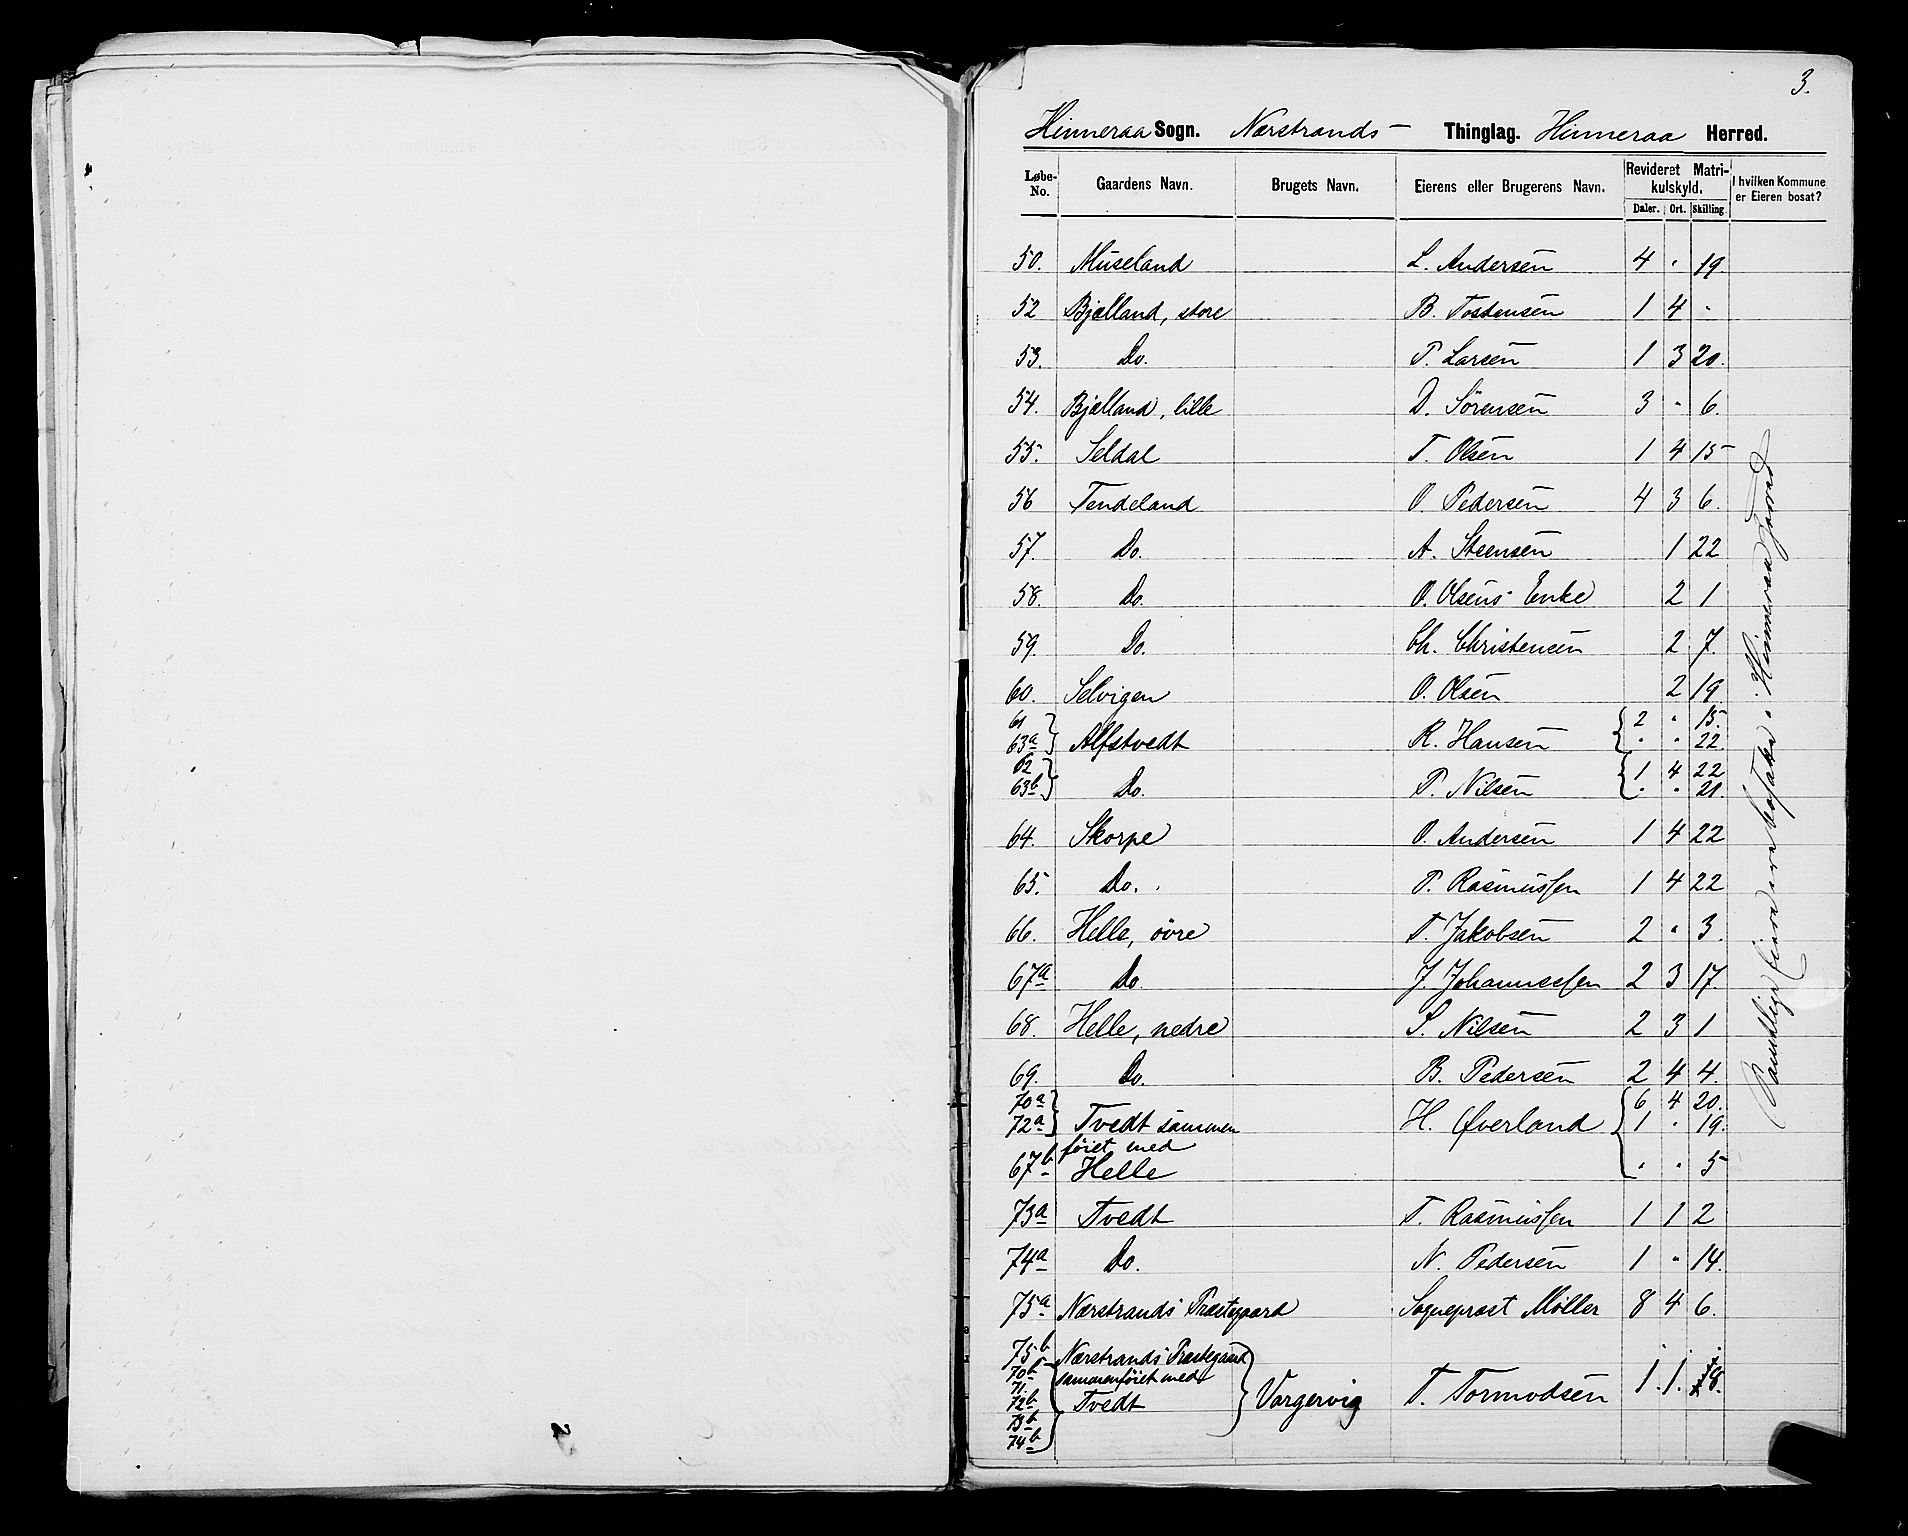 3.
Hinneraa Sogn. Nærstrands- Thinglag. Hinneraa Herred.
Løbe-No. Gaardens Navn. Brugets Navn. Eierens eller Brugerens Navn. Revideret Matrikulskyld. I hvilken Kommune er Eieren bosat?
Daler. Ort. Skilling
50. Museland L. Andersen 4 " 19.
52 Bjælland, store B. Tostensen 1 4 "
53. Do. P. Larsen 1 3 20.
54. Bjælland, lille D. Sörensen 3 " 6.
55. Seldal T. Olsen 1 4 15
56 Tendeland O. Pedersen 4 3 6.
57. Do. A. Steensen 1 22
58. Do. O. Olsens Enke 2 1
59. Do. Ch. Christensen 2 7.
60. Selvigen O. Olsen 2 19
61 2 " 15.
63a Alfstvedt R. Hansen " " 22.
62 1 4 22
63b Do. P. Nilsen " " 21.
64. Skorpe O. Andersen 1 4 22
65. Do. P. Rasmussen 1 4 22
66. Helle, övre T. Jakobsen 2 " 3.
67a Do. J. Johannessen 2 3 17.
68. Helle, nedre S. Nilsen 2 3 1
69. Do. B. Pedersen 2 4 4.
70a 6 4 20.
72a Tvedt sammen H. Øverland 1 " 19.
föiet med
67b Helle " " 5
73a Tvedt T. Rasmussen 1 1 2
74a Do. N. Pedersen 1 " 14.
75a Nærstrands Præstegaard Sognepræst Møller 8 4 6.
75b Nærstrands Præstegaard
70b sammenföiet med
71. Vargervig T. Tormodsen 1. 1.
72b Tvedt
73b
74b
Samtlige Eiere ere bosatte i Hinneraa Herred